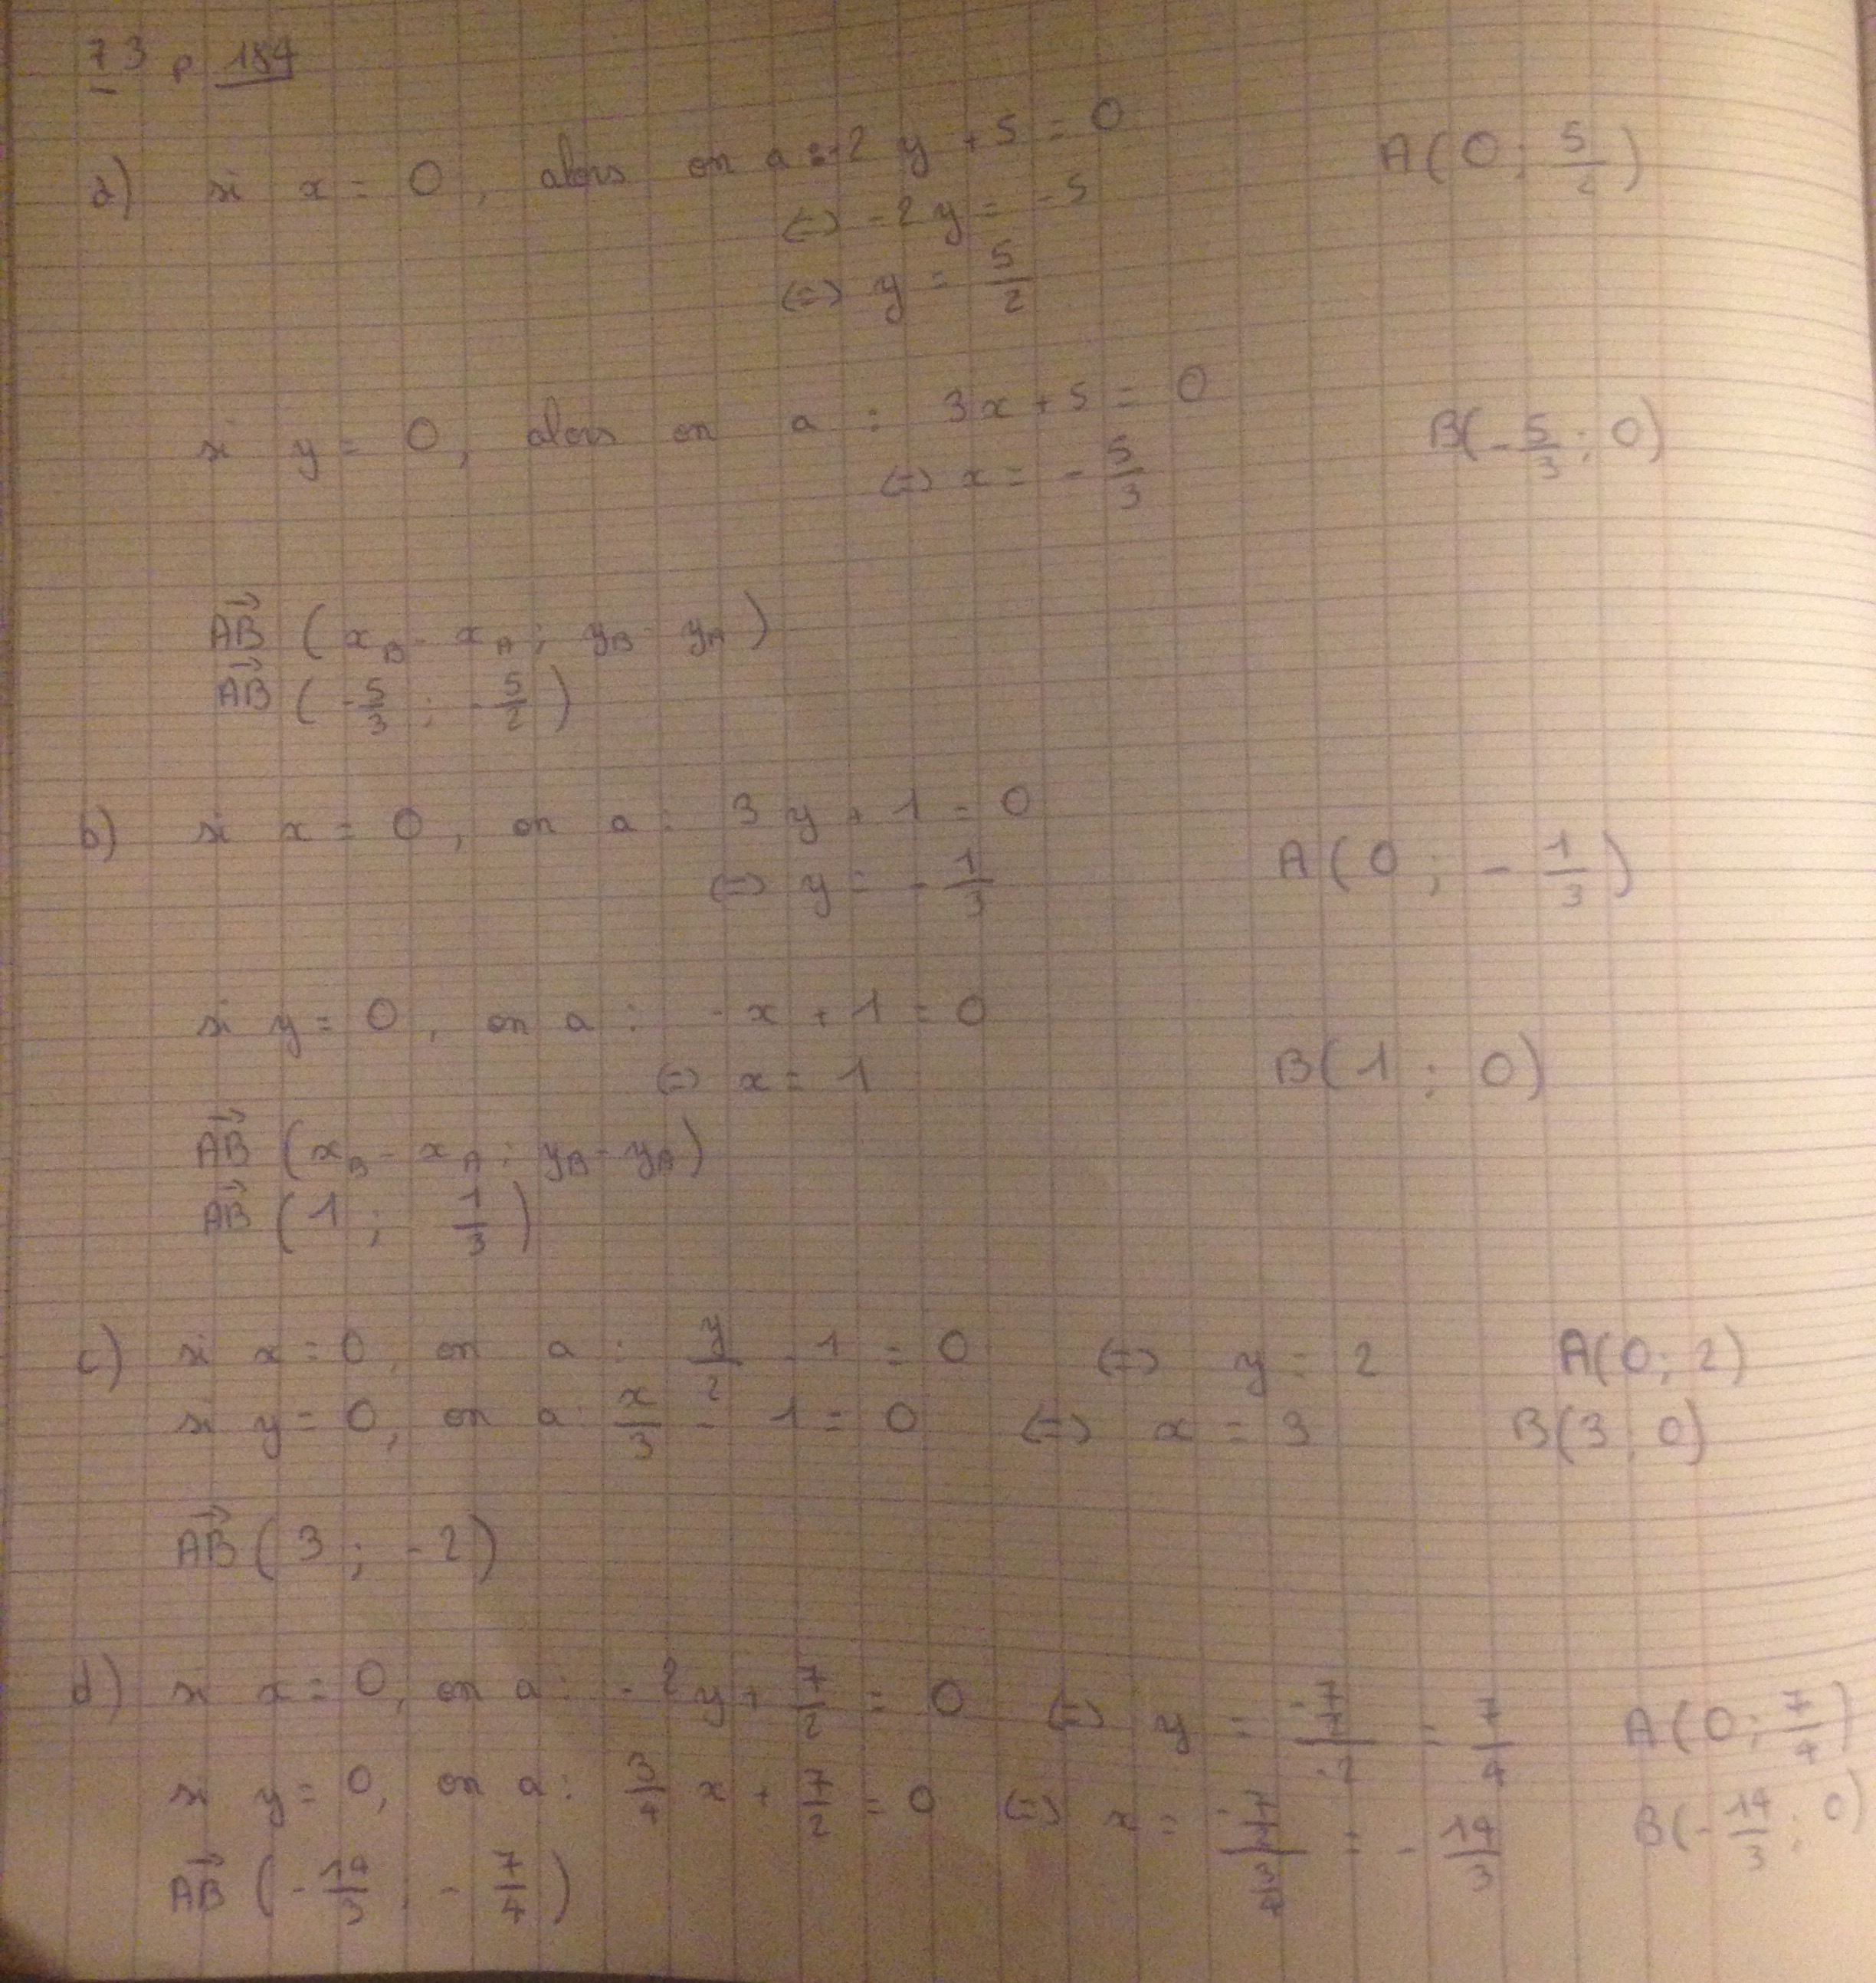 73 p 184
a) si x = 0, alors on a : -2y + 5 = 0 A(0 ; 5/2)
(=) -2y = -5
(=) y = 5/2
si y = 0, alors on a : 3x + 5 = 0 B(-5/3 ; 0)
(=) x = -5/3
AB→ (xB - xA ; yB - yA)
AB→ (-5/3 ; -5/2)
b) si x = 0, on a : 3y + 1 = 0
(=) y = -1/3 A(0 ; -1/3)
si y = 0, on a : -x + 1 = 0
(=) x = 1 B(1 ; 0)
AB→ (xB - xA ; yB - yA)
AB→ (1 ; 1/3)
c) si x = 0, on a : y/2 - 1 = 0 (=) y = 2 A(0 ; 2)
si y = 0, on a : x/3 - 1 = 0 (=) x = 3 B(3 ; 0)
AB→ (3 ; -2)
d) si x = 0, on a : -2y + 7/2 = 0 (=) y = (-7/2)/(-2) = 7/4 A(0 ; 7/4)
si y = 0, on a : 3/4 x + 7/2 = 0 (=) x = (-7/2)/(3/4) = -14/3 B(-14/3 ; 0)
AB→ (-14/3 ; -7/4)